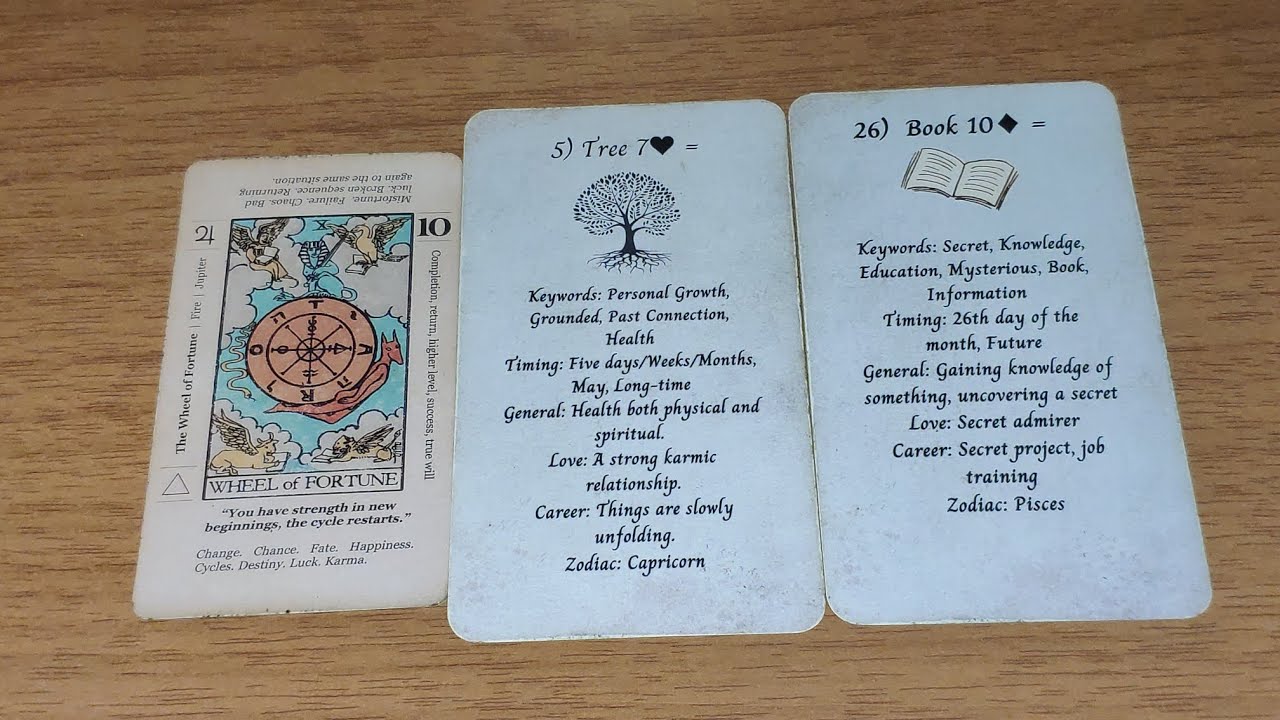 Misfortune. Failure. Chaos. Bad
luck. Broken sequence. Returning
again to the same situation.
10
X
The Wheel of Fortune | Fire | Jupiter
Completion, return, higher level, success, true will
WHEEL of FORTUNE
“You have strength in new
beginnings, the cycle restarts.”
Change. Chance. Fate. Happiness.
Cycles. Destiny. Luck. Karma.
5) Tree 7♥ =
Keywords: Personal Growth,
Grounded, Past Connection,
Health
Timing: Five days/Weeks/Months,
May, Long-time
General: Health both physical and
spiritual.
Love: A strong karmic
relationship.
Career: Things are slowly
unfolding.
Zodiac: Capricorn
26) Book 10♦ =
Keywords: Secret, Knowledge,
Education, Mysterious, Book,
Information
Timing: 26th day of the
month, Future
General: Gaining knowledge of
something, uncovering a secret
Love: Secret admirer
Career: Secret project, job
training
Zodiac: Pisces